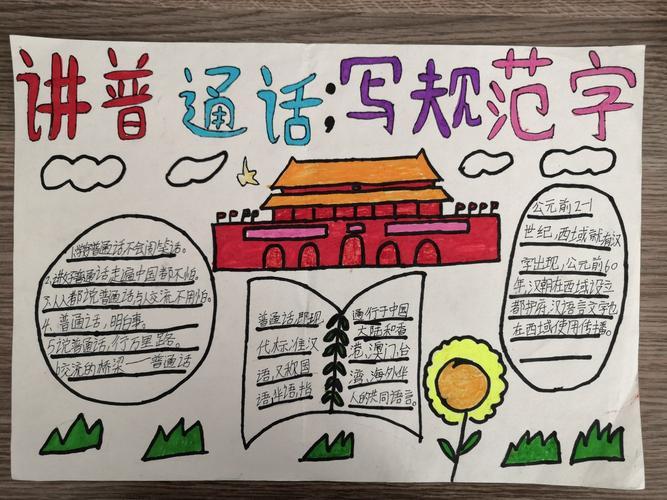 讲普通话;写规范字
1.学好普通话,不会闹笑话。
2.讲好普通话走遍中国都不怕。
3.人人都说普通话与人交流不用怕。
4、普通话,明白事。
5说普通话,行万里路。
6交流的桥梁——普通话
普通话,即现
代标准汉
语,又叔国
语,华语,指
通行于中国
大陆和香
港,澳门,台
湾,海外华
人的共同语言。
公元前2-1
世纪,西域就有汉
字出现,公元前60
年汉朝在西域设立
都护府,汉语言文字也
在西域使用传播。